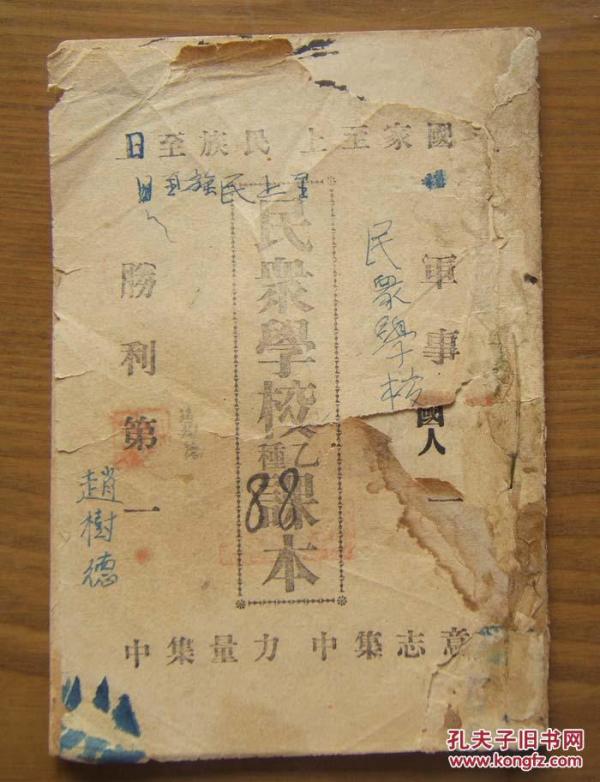 國家至上 民族至上
至上民族至
軍事
國人
一
民眾學校
民眾學校乙種課本
88
勝利第一
趙樹德
意志集中 力量集中
孔夫子旧书网
www.kongfz.com